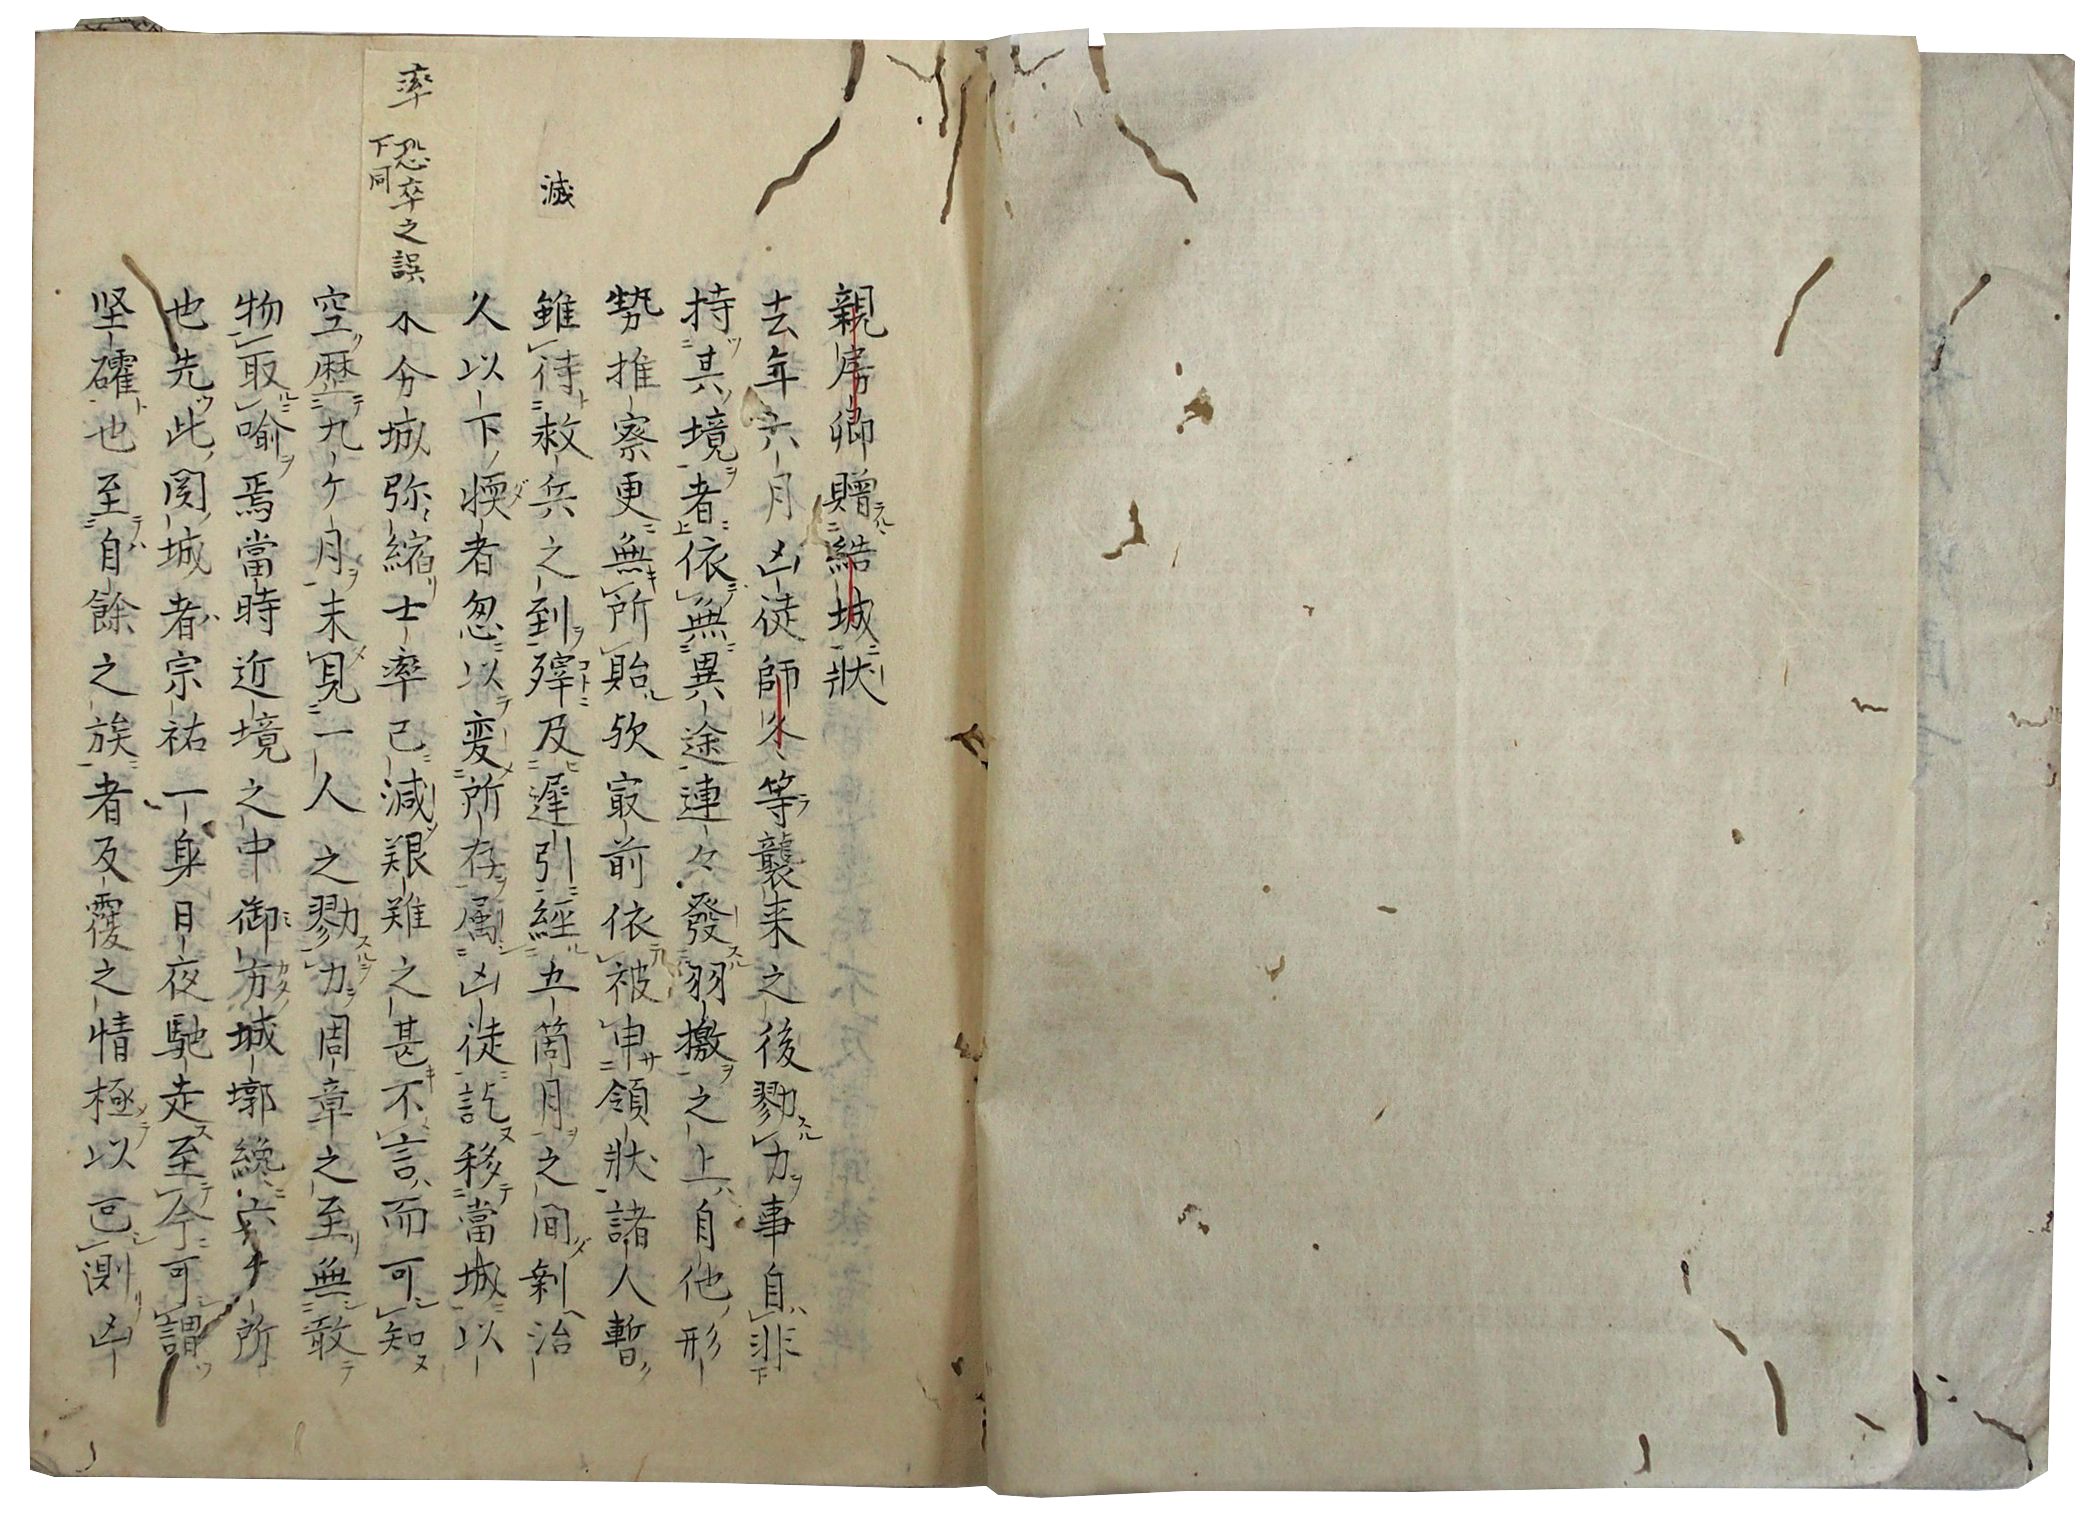 親房卿贈結城狀
去年六月凶徒師冬等襲来之後勠力事自非
持其境者依無異途連々發羽檄之上自他形
勢推察更無所貽欤寂前依被申領狀諸人暫
雖待救兵之到竊及遲引經五箇月之間剰治
久以下牒者忽以変所存属凶徒訖移當城以
来兮城弥縮士率已減艱難之甚不言而可知
空歴九ケ月未見一人之勠力周章之至無敢
物取喩焉當時近境之中御方城墎纔六ケ所
也先此関城者宗祐一身日夜馳走至今可謂
坚確也至自餘之族者反覆之情極以叵測凶
滅
率
恐卒之誤
下同